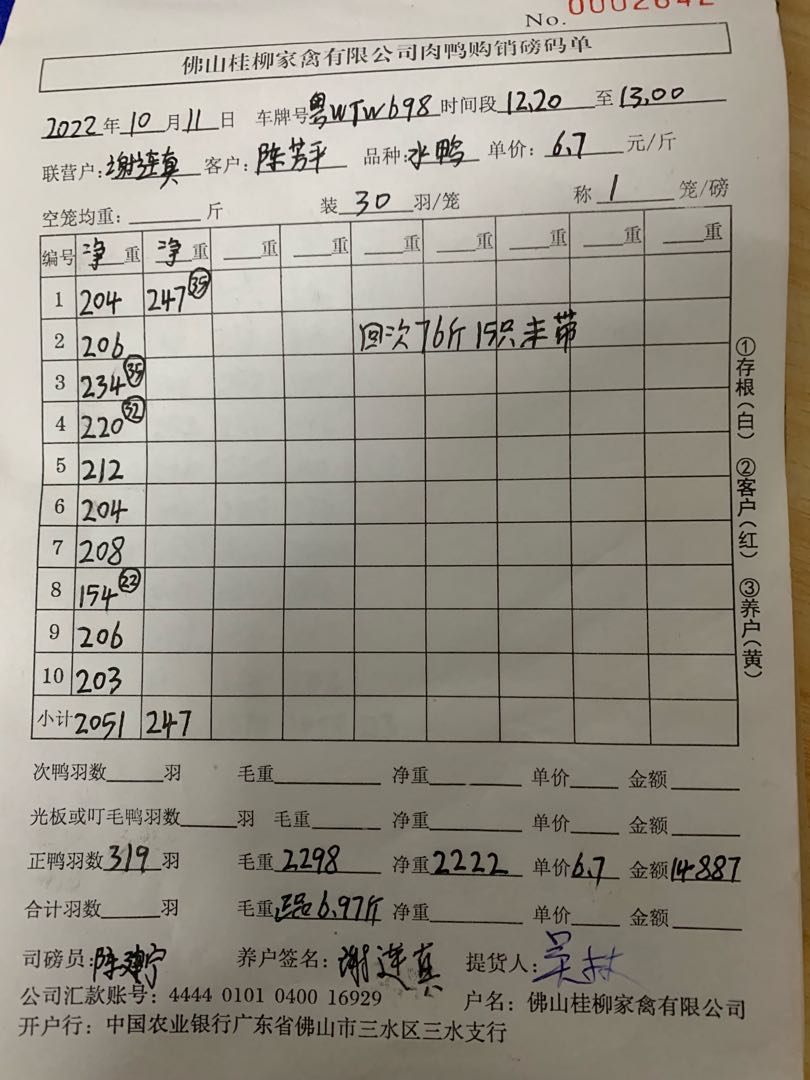 No. 0002642
佛山桂柳家禽有限公司肉鸭购销磅码单
2022年10月11日 车牌号粤WTW698 时间段12.20至13.00
联营户:谢连真 客户:陈芳平 品种:水鸭 单价:6.7元/斤
空笼均重:______斤 装30羽/笼 称1笼/磅
编号 净重 净重 ___重 ___重 ___重 ___重 ___重 ___重 ___重
1 204 247㉟
2 206 回次76斤15只未带
3 234㉟
4 220㉜
5 212
6 204
7 208
8 154㉒
9 206
10 203
小计 2051 247
①存根(白) ②客户(红) ③养户(黄)
次鸭羽数_____羽 毛重_____ 净重_____ 单价_____ 金额_____
光板或叮毛鸭羽数_____羽 毛重_____ 净重_____ 单价_____ 金额_____
正鸭羽数319羽 毛重2298 净重2222 单价6.7 金额14887
合计羽数_____羽 毛重正品6.97斤 净重_____ 单价_____ 金额_____
司磅员:陈 宁 养户签名:谢连真 提货人:吴
公司汇款账号: 4444 0101 0400 16929 户名: 佛山桂柳家禽有限公司
开户行: 中国农业银行广东省佛山市三水区三水支行